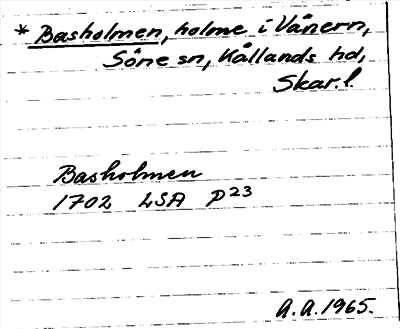 * Basholmen, holme i Vänern,
Söne sn, Kållands hd,
Skar. l.
Basholmen
1702 LSA P23
A.A. 1965.